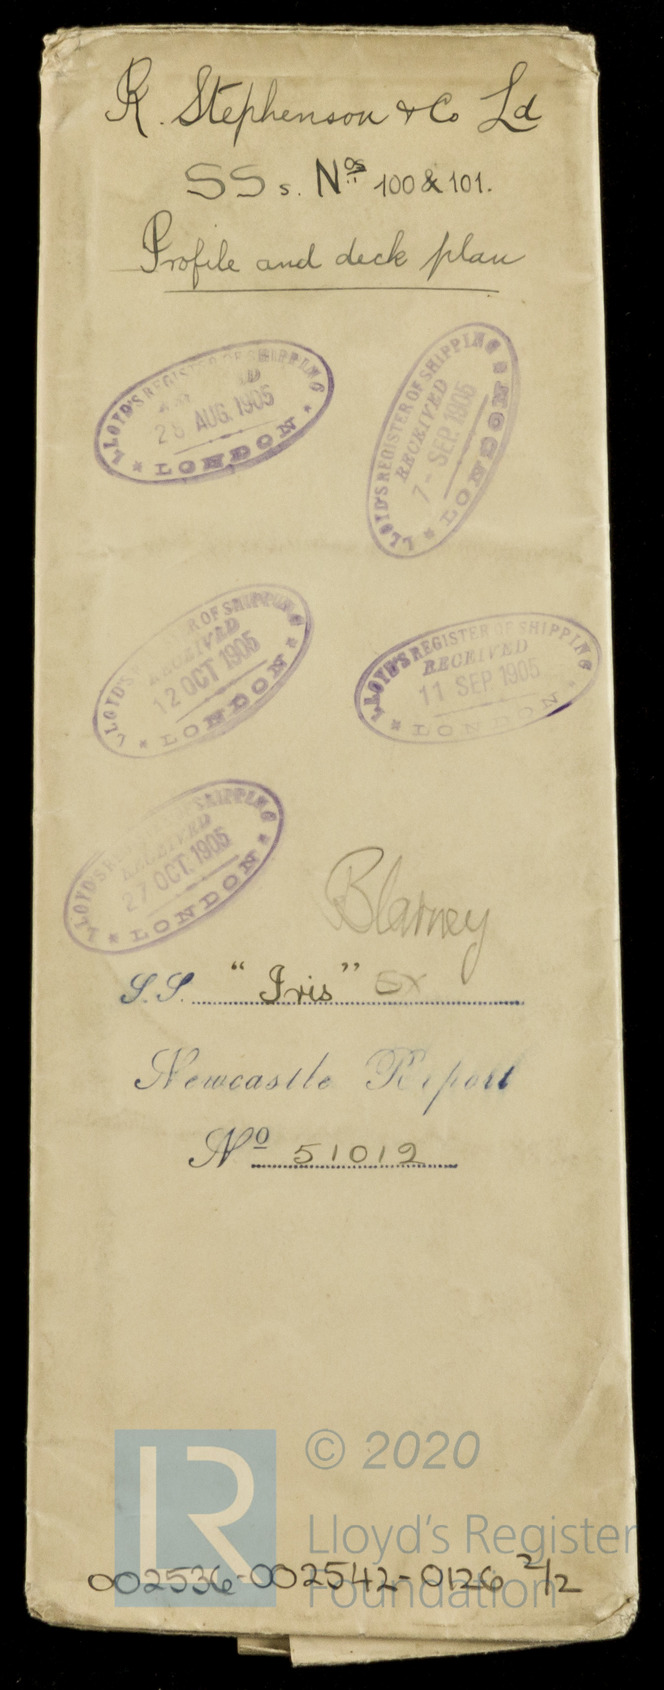 R. Stephenson & Co Ld
SSs. Nos 100 & 101.
Profile and deck plan
LLOYD'S REGISTER OF SHIPPING
AUG. 1905
LONDON
LLOYD'S REGISTER OF SHIPPING
RECEIVED
7 - SEP. 1905
LONDON
LLOYD'S REGISTER OF SHIPPING
RECEIVED
12 OCT 1905
LONDON
LLOYD'S REGISTER OF SHIPPING
RECEIVED
11 SEP. 1905
LONDON
LLOYD'S REGISTER OF SHIPPING
RECEIVED
27 OCT. 1905
LONDON
Blarney
S.S. "Iris" ex
Newcastle Report
No 51012
© 2020
LR
Lloyd's Register
Foundation
002536-002542-0126 2/2